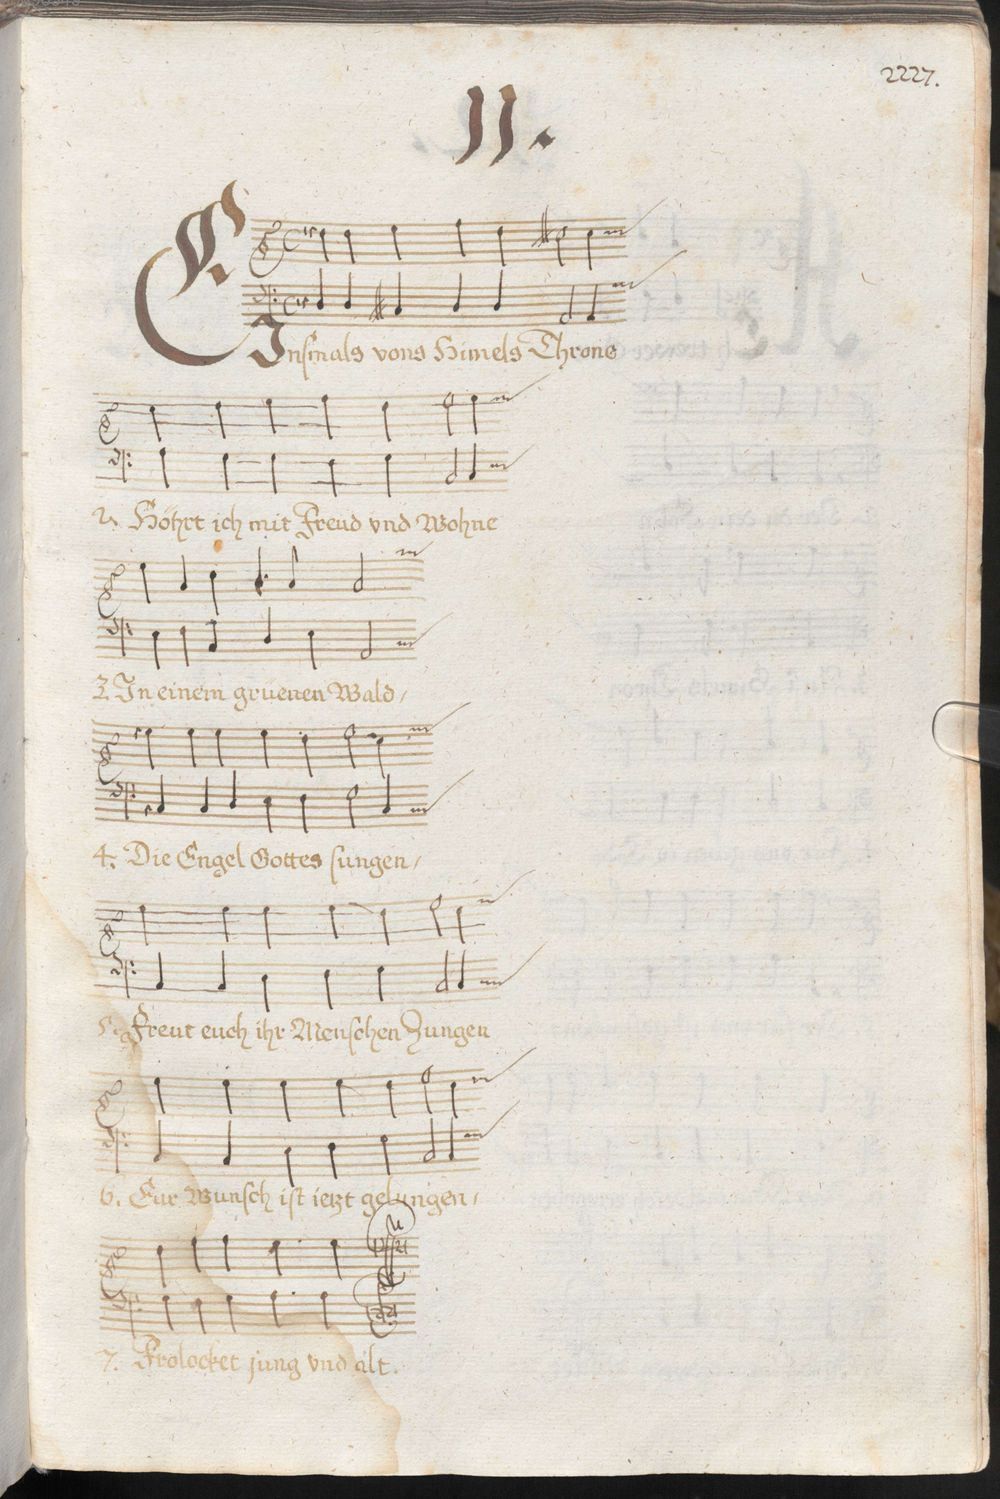 2227.
11.
Einsmals vons Himels Throne
2. Höhrt ich mit Freud vnd Wohne
3. In einem gruenen Wald,
4. Die Engel Gottes sungen,
5. Freut euch ihr Menschen Zungen
6. Eur Wunsch ist ietzt gelungen,
7. Frolocket jung vnd alt.